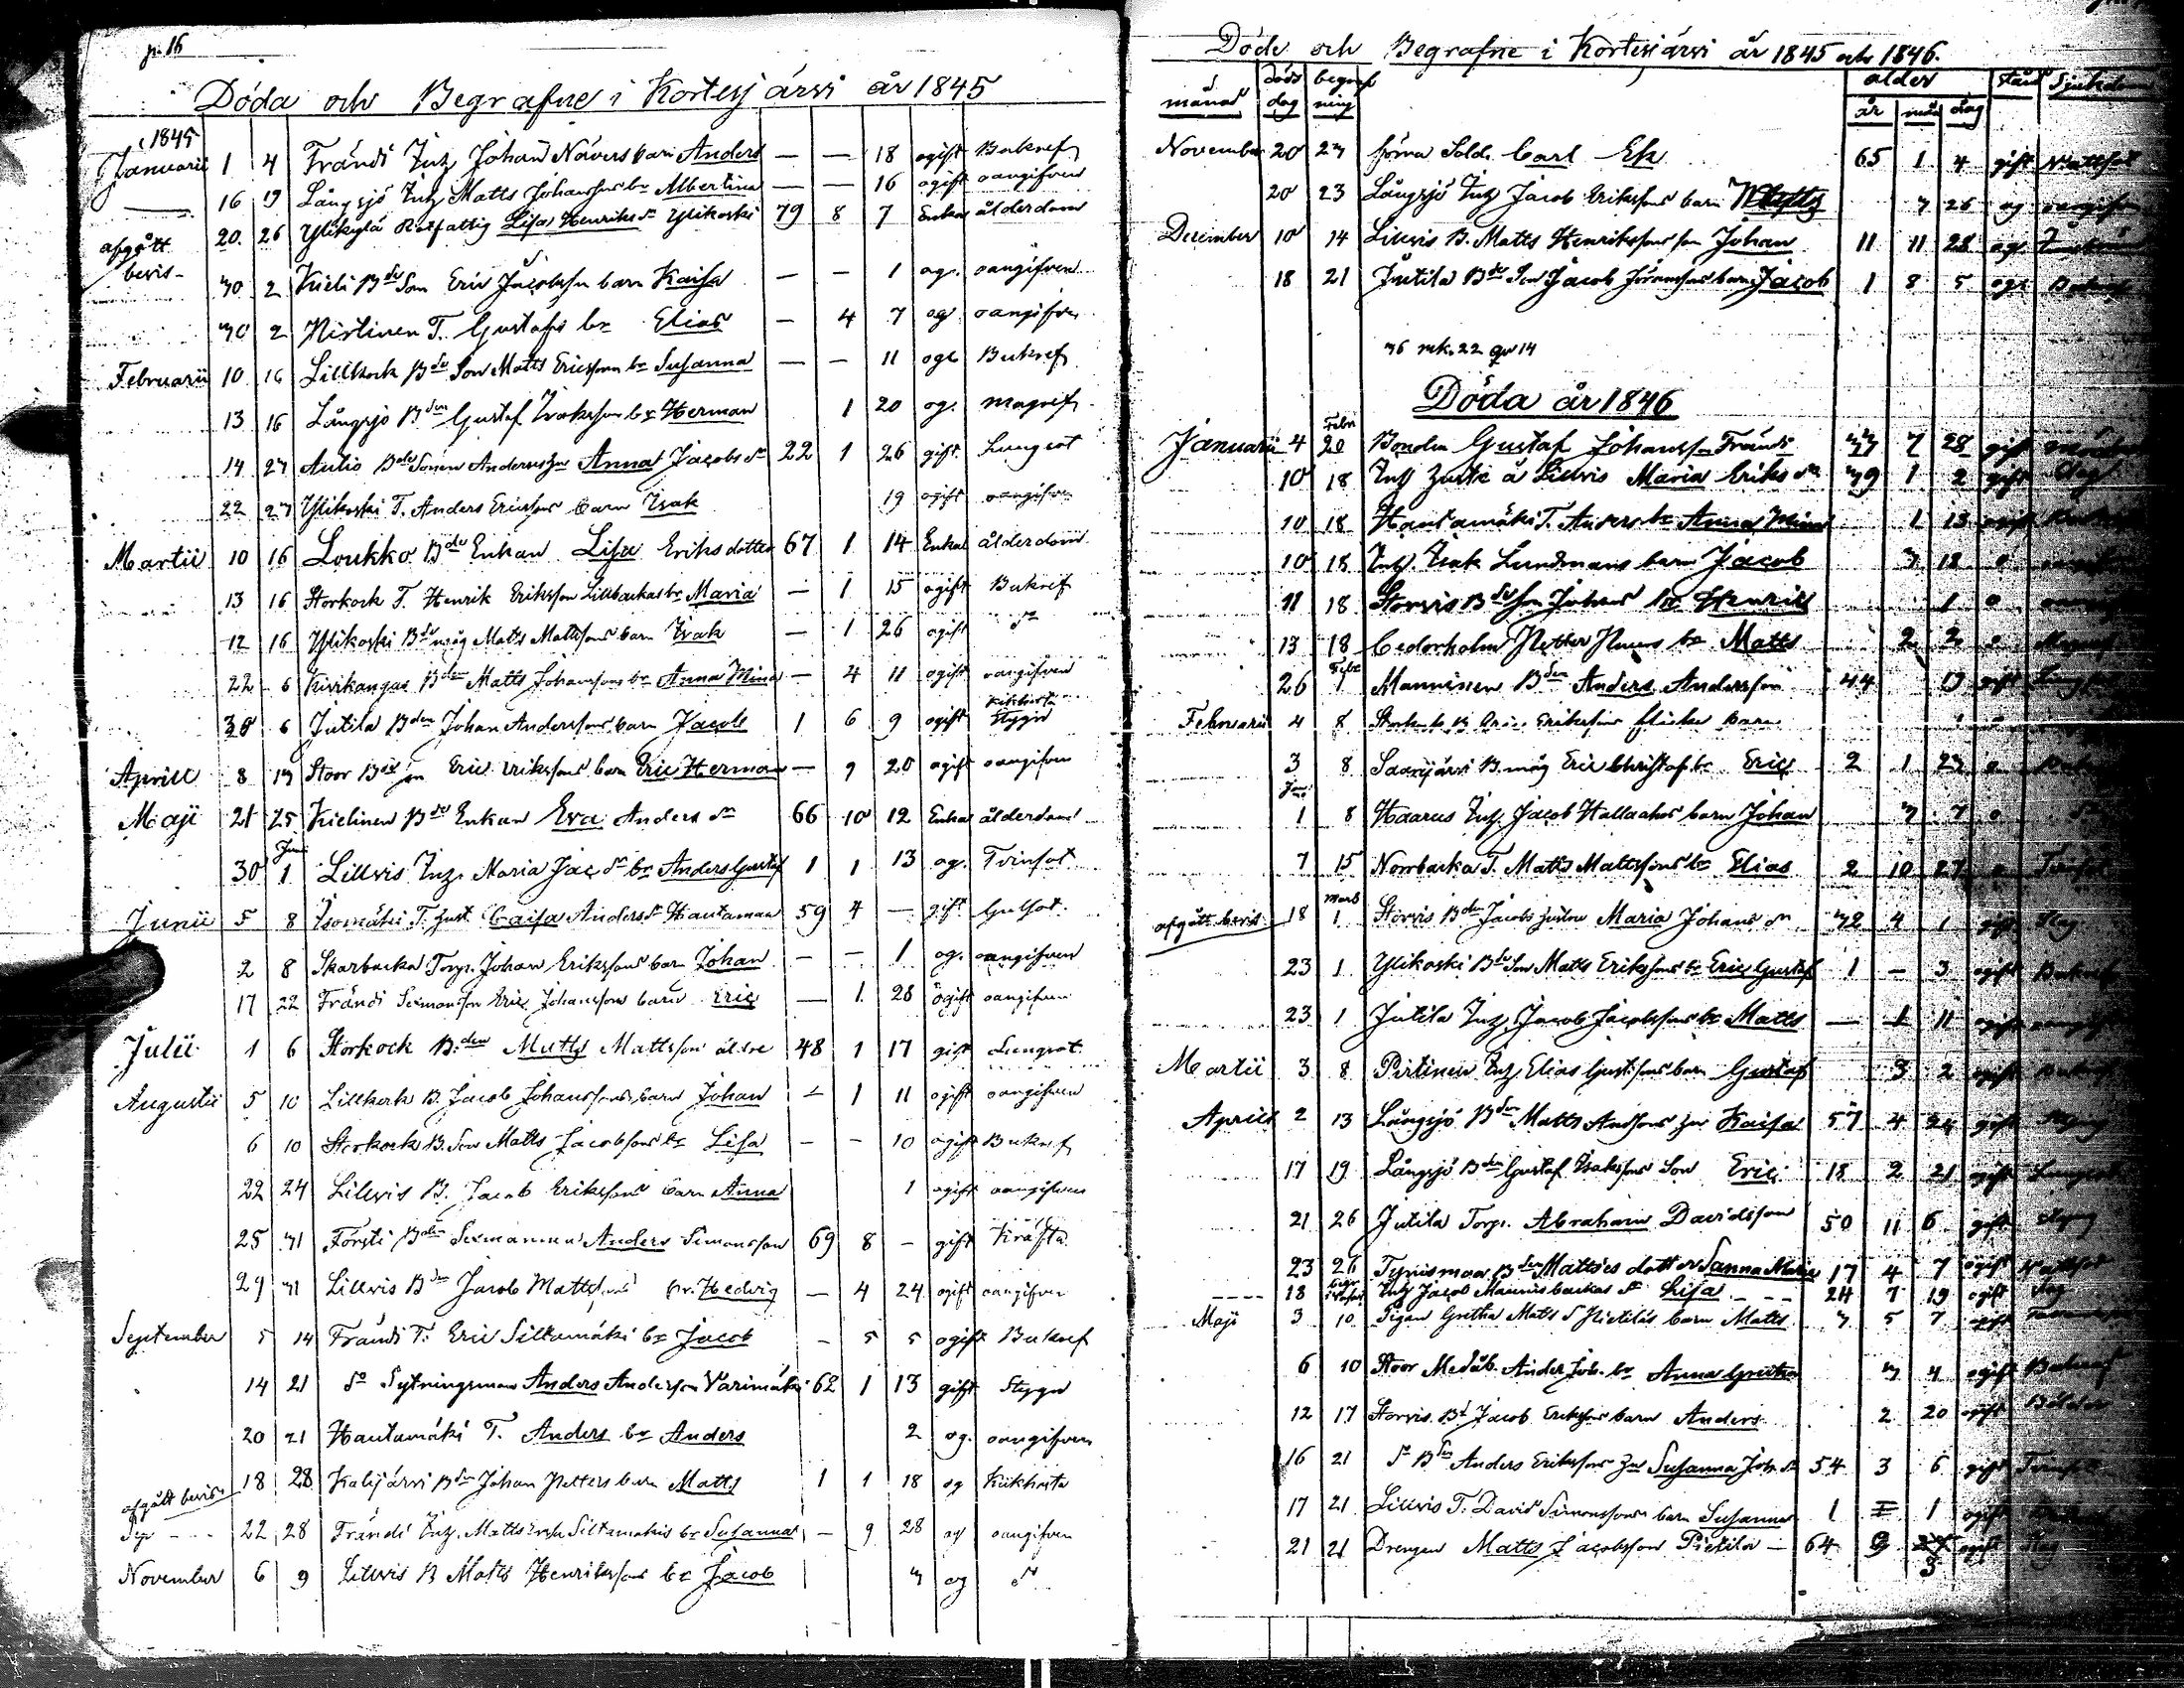 p. 16
Döda och Begrafne i Kortesjärvi år 1845
1845
Januarii 1 4 Frändi Inh. Johan Nävers barn Anders — — 18 ogift Bukref
16 19 Långsjö Inh. Matts Johanssons br Albertina — — 16 ogift oangifven
afgått bevis 20. 26 Ylikylä Rotfattig Lisa Henriks dr Ylikoski 79 8 7 Enka ålderdom
30 2 Kieli Bde Son Eric Jacobsson barn Kaisa — — 1 og. oangifven
30 2 Nirtinen T. Gustafs br Elias — 4 7 og oangifven
Februarii 10 16 Lillkock Bde Son Matts Ericssons br Susanna — — 11 og Bukref
13 16 Långsjö Bden Gustaf Isakssons br Herman 1 20 og. magref
14 23 Aulio Bde Sonen Anders hu Anna Jacobs dr 22 1 26 gift. Lungsot
22 23 Ylikoski T. Anders Ericssons barn Isak 19 ogift oangifven
Martii 10 16 Loukko Bde Enkan Lisa Eriksdotter 67 1 14 Enka ålderdom
13 16 Storkock T. Henrik Eriksson Lillbackas br Maria — 1 15 ogift Bukref
12 16 Ylikoski Bde måg Matts Mattssons barn Isak — 1 26 ogift do
22 6 Kivikangas Bden Matts Johanssons br Anna Mina — 4 11 ogift oangifven
30 6 Jutila Bden Johan Anderssons barn Jacob 1 6 9 ogift Kikhosta Stygn
Aprill 8 13 Stoor Bde son Eric Erikssons barn Eric Herman — 9 20 ogift oangifven
Maji 21 25 Kielinen Bde Enkan Eva Anders dr 66 10 12 Enka ålderdom
30 Juni 1 Lillvis Inh. Maria Jac dr br Anders Gustaf 1 1 13 og. Tvinsot
Junii 5 8 Isomäki T. hust. Caisa Anders dr Hautaman 59 4 — gift Gulsot.
2 8 Skarbacka Torp. Johan Erikssons barn Johan — — 1 og. oangifven
17 22 Frändi Sexmanson Eric Johanssons barn Eric — 1 28 ogift oangifven
Julii 1 6 Storkock B.den Matts Mattsson äldre 48 1 17 gift Lungsot
Augustii 5 10 Lillkock B. Jacob Johanssons barn Johan — 1 11 ogift oangifven
6 10 Storkock B. Son Matts Jacobsons br Lisa — — 10 ogift Bukref
22 24 Lillvis B. Jacob Erikssons barn Anna 1 ogift oangifven
25 31 Försti Bden Sexmannen Anders Simonsson 69 8 — gift Kräfta
29 31 Lillvis Bden Jacob Mattssons br. Hedvig — 4 24 ogift oangifven
September 5 14 Frändi T. Eric Siltamäki br Jacob — 5 5 ogift Bukref
14 21 do Sytningsman Anders Andersson Varimäki 62 1 13 gift Stygn
20 21 Hautamäki T. Anders br Anders 2 og. oangifven
afgått bevis 18 28 Kalijärvi Bden Johan Petters barn Matts 1 1 18 og Kikhosta
Sep --- 22 28 Frändi Inh. Matts Siltamäkis br Susanna — 9 28 og oangifven
November 6 9 Lillvis B Matts Henrikssons br Jacob 3 og do
Döde och Begrafne i Kortesjärvi år 1845 och 1846.
månad döds dag begrafning ålder år mån dag stånd Sjukdom
November 20 23 förra Sold. Carl Ek 65 1 4 gift Wattsot
20 23 Långsjö Inh. Jacob Erikssons barn 3 26 og oangifven
December 10 14 Lillvis B. Matts Henrikssons son Johan 11 11 28 og.
18 21 Jutila Bde Son Jacob Göranssons barn Jacob 1 8 5 og.
36 mk. 22 qv 14
Döda år 1846
Januarii 4 Febr 20 Bonden Gustaf Johansson Frändi 33 7 28 gift
10 18 Inh. å Lillvis Maria Eriks dr 39 1 2 gift Slag
10 18 Hautamäki T. Anders br Anna Mina 1 13 ogift
10 18 Inh. Isak Lundmans barn Jacob 3 12 o
11 18 Storvis Bde son Johans br Henrik 1 o
13 18 Cederholm Petter br Matts 2 2 o
26 Febr 1 Manninen Bden Anders Andersson 44 13 gift
Februarii 4 8 Erikssons flicka barn
3 8 Saarijärvi B. måg Eric Christof br Eric 2 1 23 o
Jan: 1 8 Haarus Inh. Jacob Hallaahos barn Johan 3 7 o
7 15 Norrbacka T. Matts Mattssons br Elias 2 10 27 o Tvinsot
afgått bevis 18 Mars 1 Storvis Bden Jacobs hustru Maria Johans dr 32 4 1 gift Slag
23 1 Ylikoski Bde Son Matts Erikssons br Eric Gustaf 1 — 3 ogift Bukref
23 1 Jutila Inh. Jacob Jacobssons br Matts — 1 11 ogift oangifven
Martii 3 8 Pirtinen Inh. Elias Gustafssons barn Gustaf 3 2 ogift Bukref
Aprill 2 13 Långsjö Bden Matts Anderssons hu Kaisa 57 4 24 gift Stygn
17 19 Långsjö Bden Gustaf Isakssons Son Eric 18 2 21 ogift Lungsot
21 26 Jutila Torp. Abraham Davidsson 50 11 6 gift Stygn
23 26 Tynismaa Bden Mattses dotter Sanna Maria 17 4 7 ogift Wattsot
---- 18 Inh Jacob Mannisbackas dr Lisa --- 24 7 19 ogift Slag
Maji 3 10 Pigan Gretha Matts dr Pietiläs barn Matts 3 5 7 ogift
6 10 Stoor Anders Joh. br Anna Gretha 3 4 ogift Bukref
12 17 Storvis Bd Jacob Erikssons barn Anders 2 20 ogift Bölder
16 21 do Bden Anders Erikssons hu Susanna Joh. dr 54 3 6 gift Tvinsot
17 21 Lillvis T. David Simonssons barn Susanna 1 1 ogift
21 21 Drengen Matts Jacobsson Pietilä — 64 9 3 ogift Slag